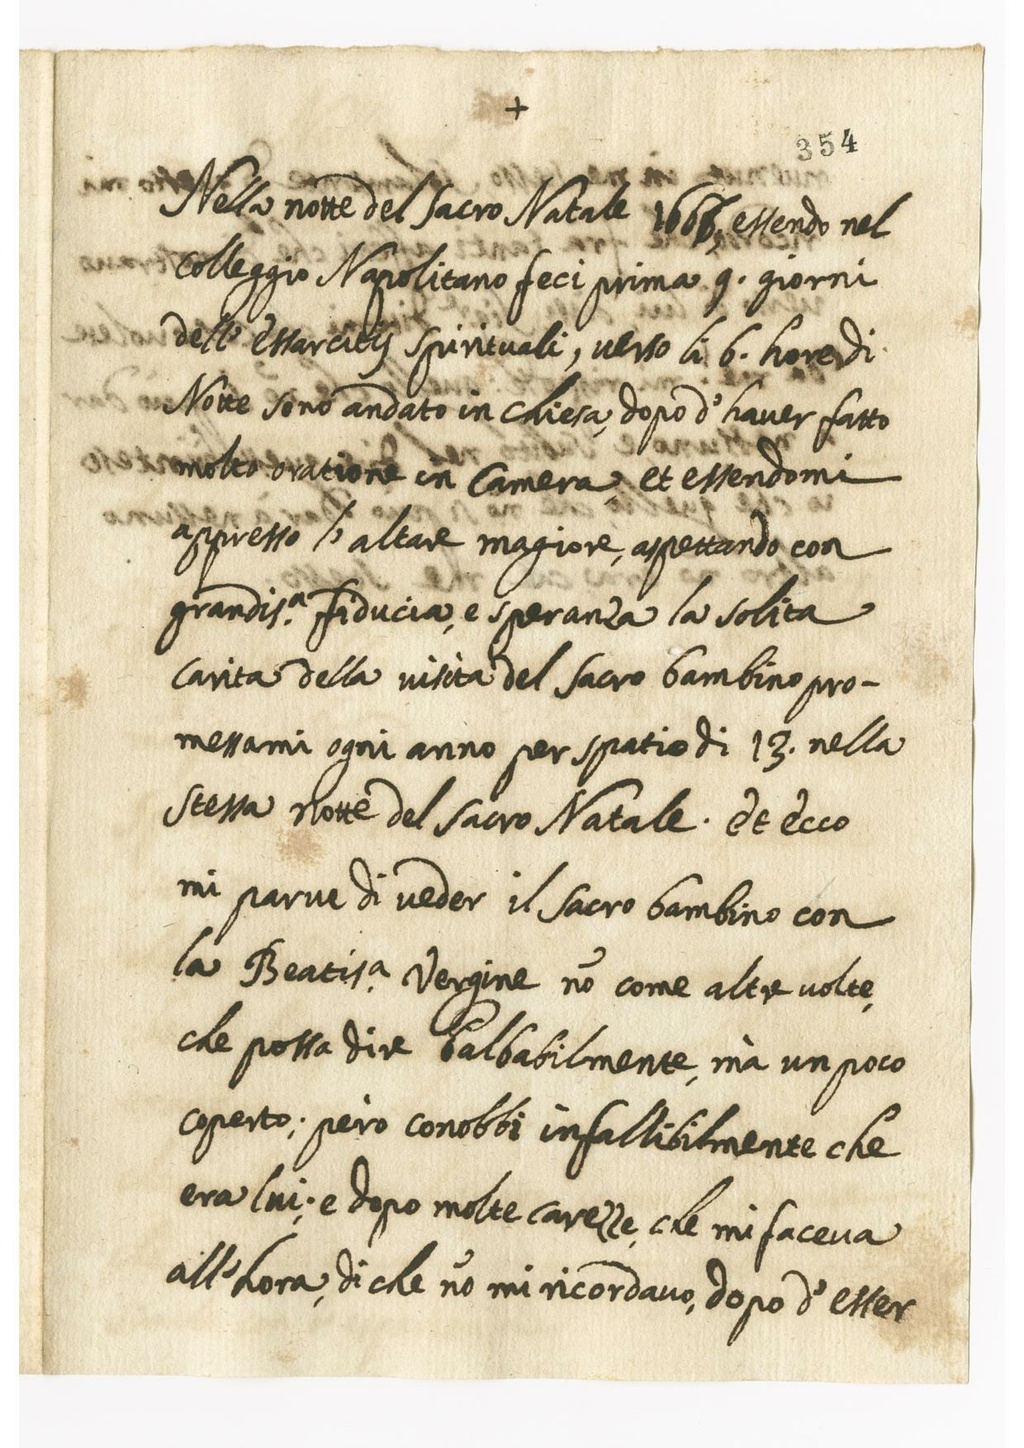 +
354
Nella notte del sacro Natale 1666, essendo nel
Colleggio Napolitano feci prima 9. giorni
dell' essarcitij spirituali, verso li 6. hore di
Notte sono andato in chiesa, dopo d' haver fatto
molto oratione in Camera, et essendomi
appresso l' altare magiore, aspettando con
grandis.a fiducia, e speranza la solita
carita della visita del sacro bambino pro-
messami ogni anno per spatio di 13. nella
stessa notte del sacro Natale. et ecco
mi parve di veder il sacro bambino con
la Beatis.a Vergine nõ come altre volte,
che possa dire balbabilmente, mà un poco
coperto; però conobbi infallibilmente che
era lui; e dopo molte carezze, che mi faceva
all' hora, di che nõ mi ricordavo, dopo d' esser